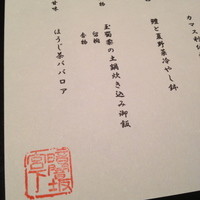 カマス
鱧と夏野菜冷やし鉢
玉蜀黍の土鍋炊き込み御飯
留椀
香物
ほうじ茶ババロア